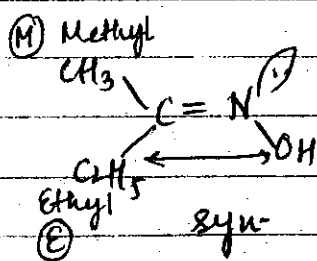 (M) Methyl
CH3
C = N
C2H5
OH
Ethyl
(E)
syn-